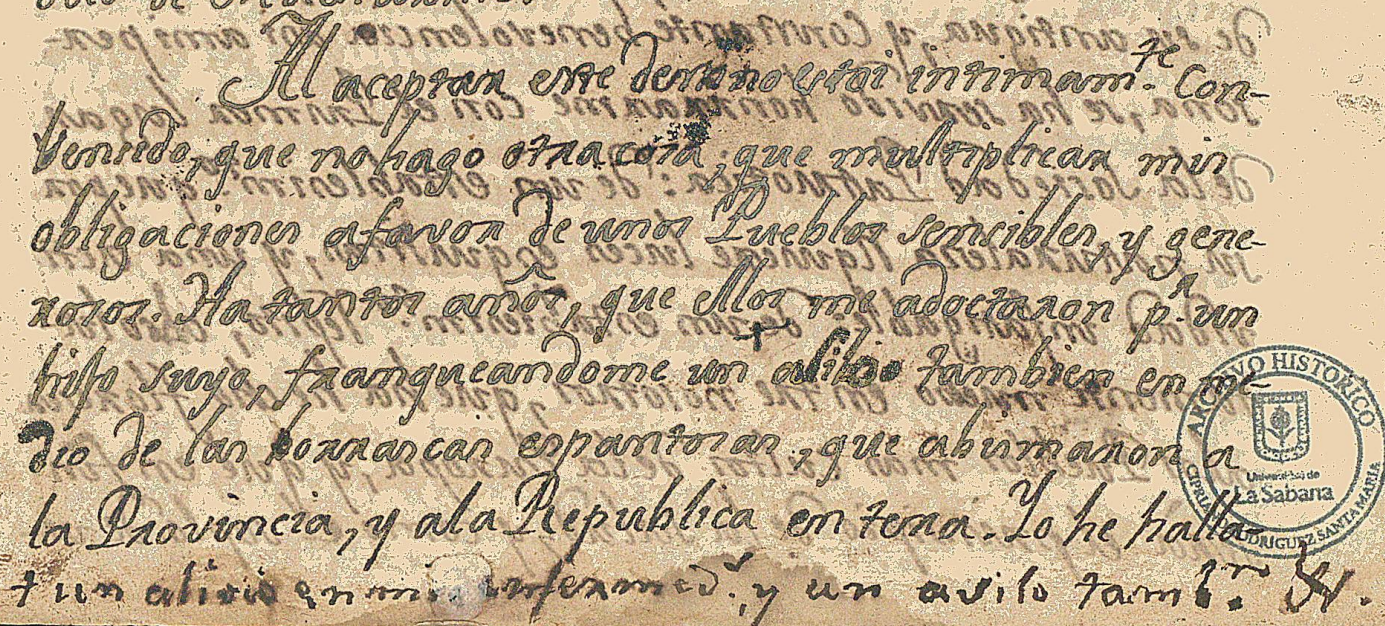 Al aceptar este destino estoi intimam.te con-
vencido, que no hago otra cosa, que multiplicar mis
obligaciones a favor de unos Pueblos sensibles, y gene-
rosos. Ha tantos años, que ellos me adoctaron p.a un
hijo suyo, franqueandome un asilo tambien en me-
dio de las borrascas espantosas, que abumaron a
la Provincia, y a la Republica entera. Yo he halla-
+ un alivio en mis enfermed.s y un asilo tamb.n &.
ARCHIVO HISTÓRICO
Universidad de
La Sabana
RODRIGUEZ SANTA MARIA